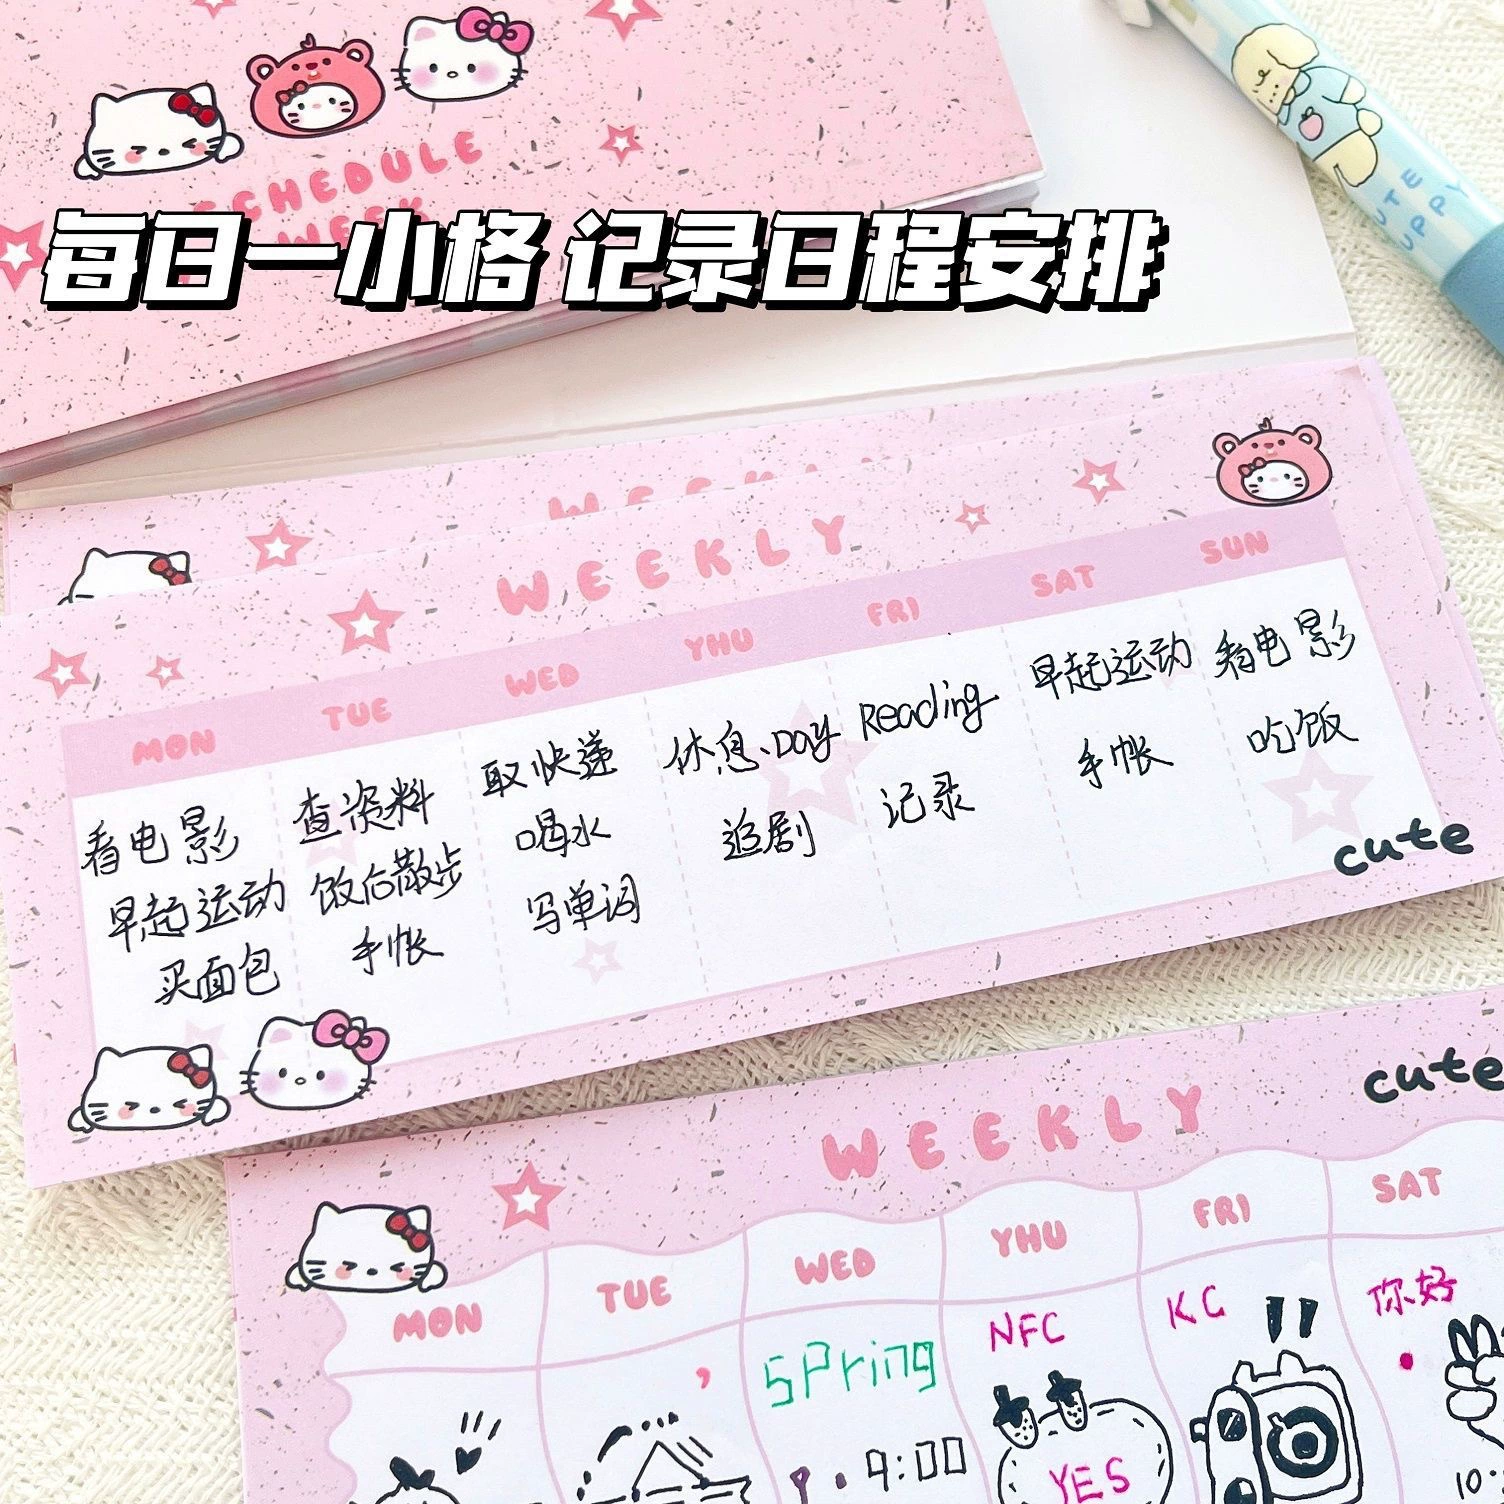 SCHEDULE
WEEK
每日一小格 记录日程安排
CUTE
UPPY
WEEKLY
WEEKLY
MON TUE WED YHU FRI SAT SUN
看电影
早起运动
买面包
查资料
饭后散步
手帐
取快递
喝水
写单词
休息、Day
追剧
Reading
记录
早起运动
手帐
看电影
吃饭
cute
cute
WEEKLY
MON TUE WED YHU FRI SAT
spring
9:00
NFC
YES
KC
你好
10: